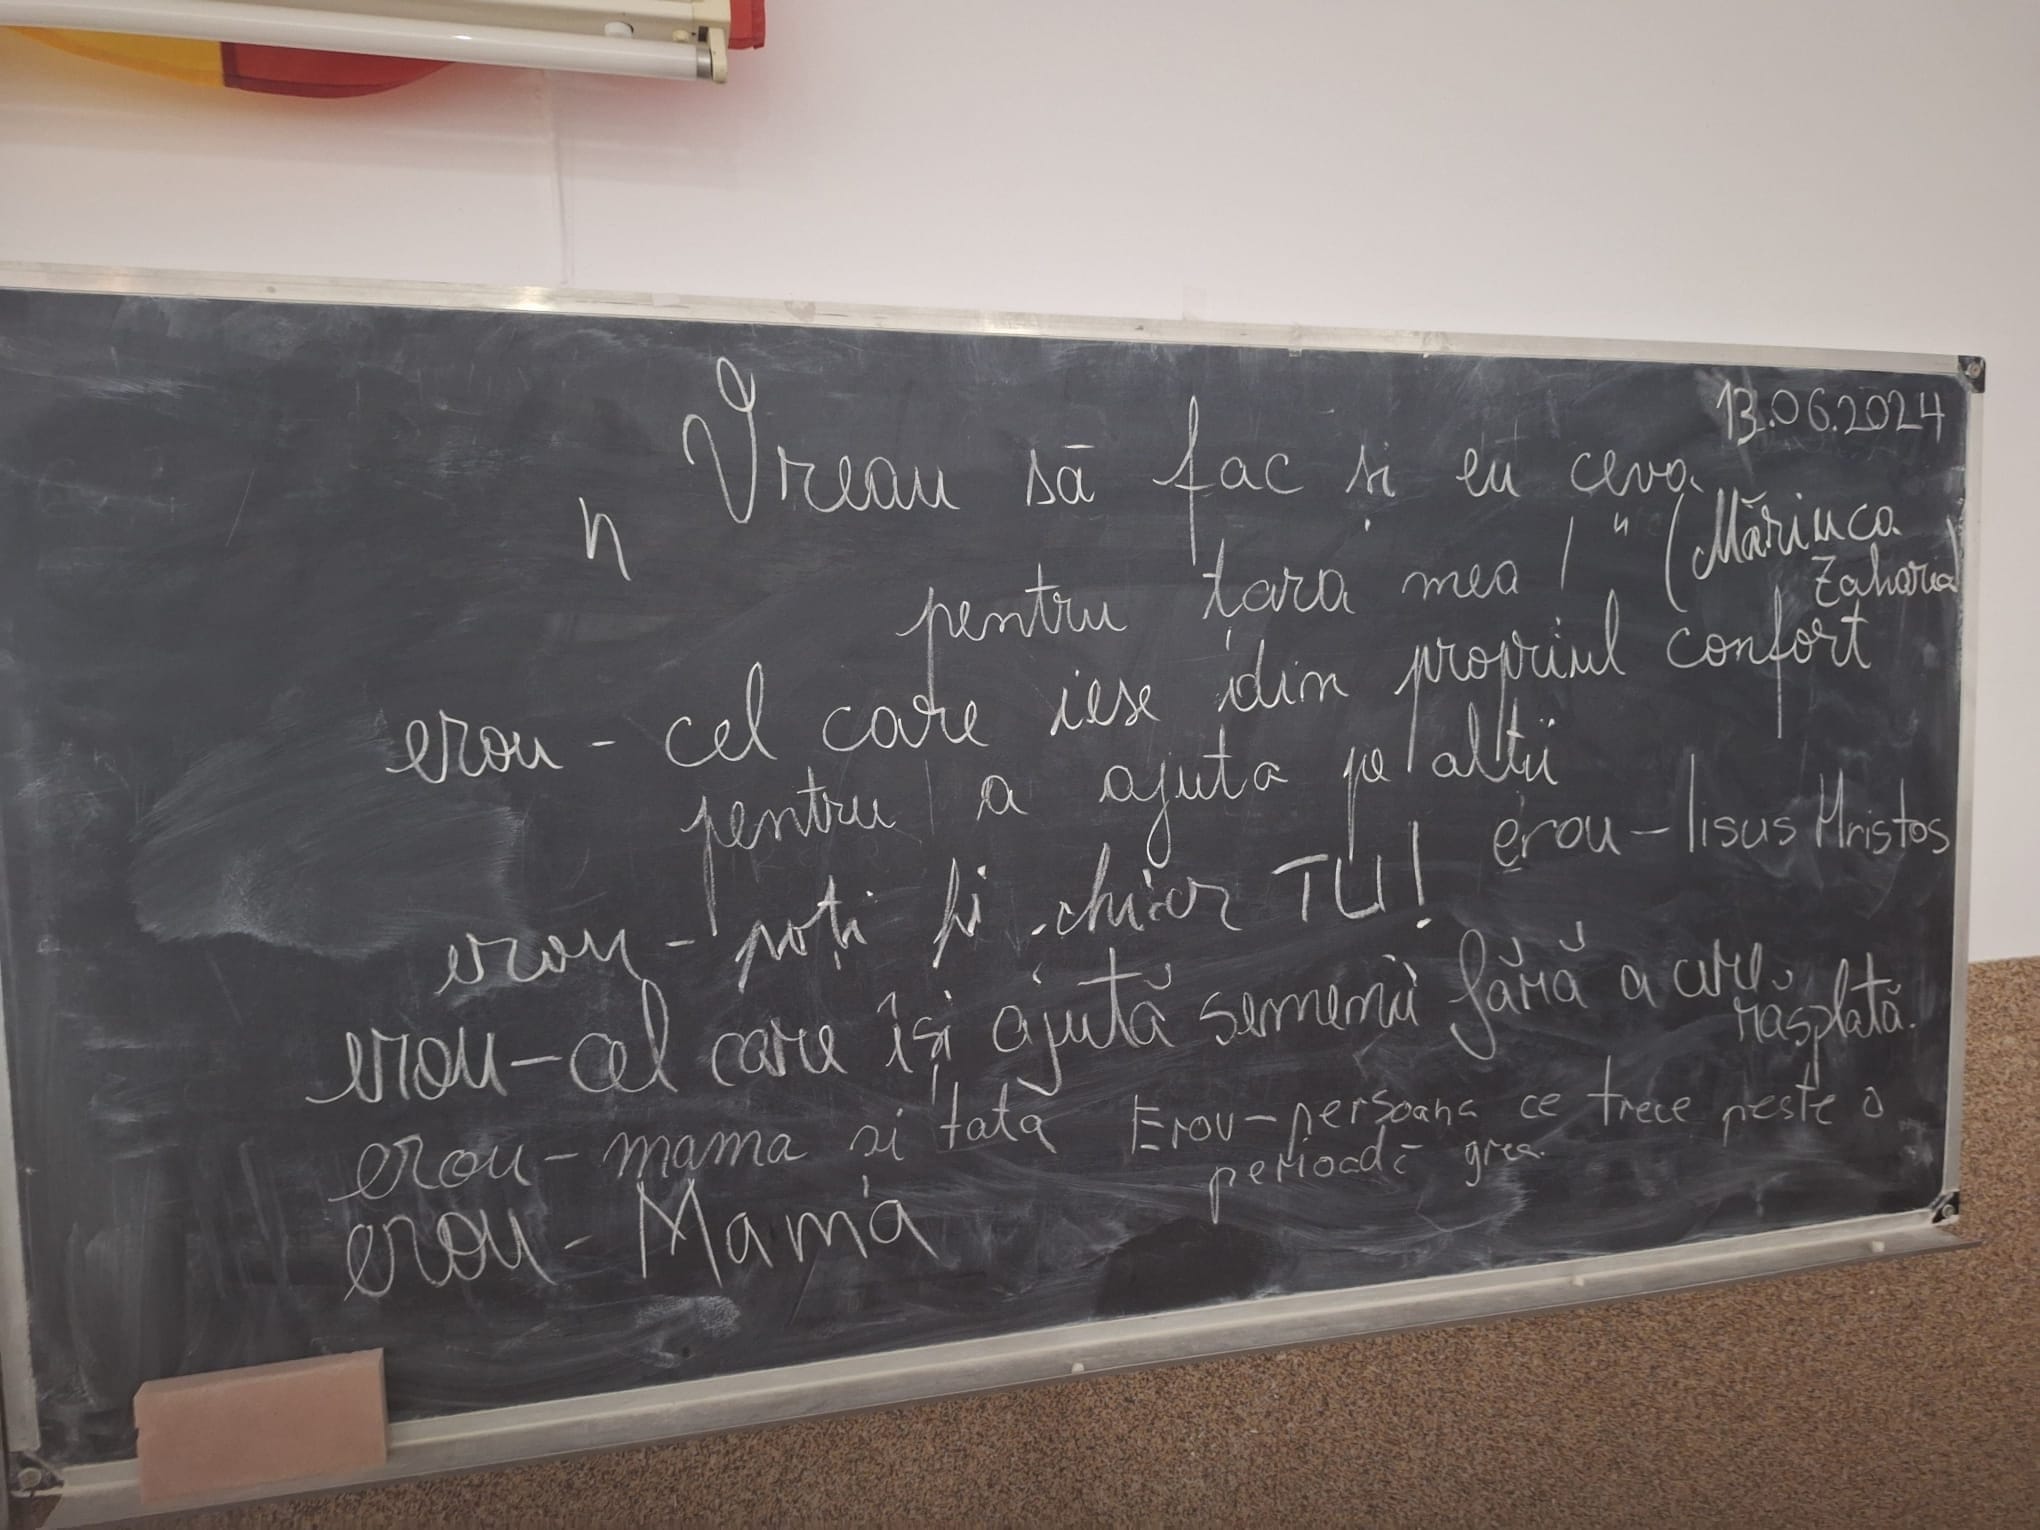 13.06.2024
„Vreau să fac și eu ceva
pentru țara mea!" (Măriuca
Zaharia)
erou - cel care iese din propriul confort
pentru a ajuta pe alții
erou - Iisus Hristos
erou - poți fi chiar TU!
erou - cel care își ajută semenii fără a cere
răsplată.
erou - mama și tata
Erou - persoana ce trece peste o
perioadă grea.
erou - Mama